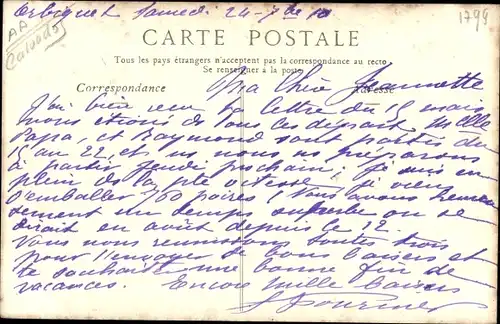 Orbiquet Samedi 24-7bre 10
1799
AA
Calvados
CARTE POSTALE
Tous les pays étrangers n'acceptent pas la correspondance au recto
Se renseigner à la poste
Correspondance
Adresse
Ma Chère Jeannette
J'ai bien reçu ta lettre du 15 mais
nous étions de tous ces départs. Melle
Papa, et Raymond sont partis du
15 au 22 et nous nous préparons
à partir jeudi prochain, je suis en
plein de la pte vitesse, je viens
d'emballer 760 poires! Nous avons heureu
sement un temps superbe on se
dirait en août depuis le 12.
Nous nous réunissons toutes trois
pour t'envoyer de bons baisers et
te souhaiter une bonne fin de
vacances. Encore mille baisers